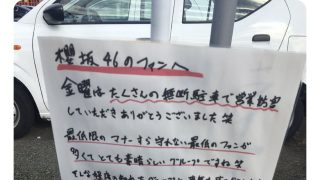 櫻坂46のファンへ
金曜は たくさんの無断駐車で営業妨害
していただき ありがとうございました 笑
最低限のマナーすら守れない最低のファンが
多くて とても素晴らしいグループですね 笑